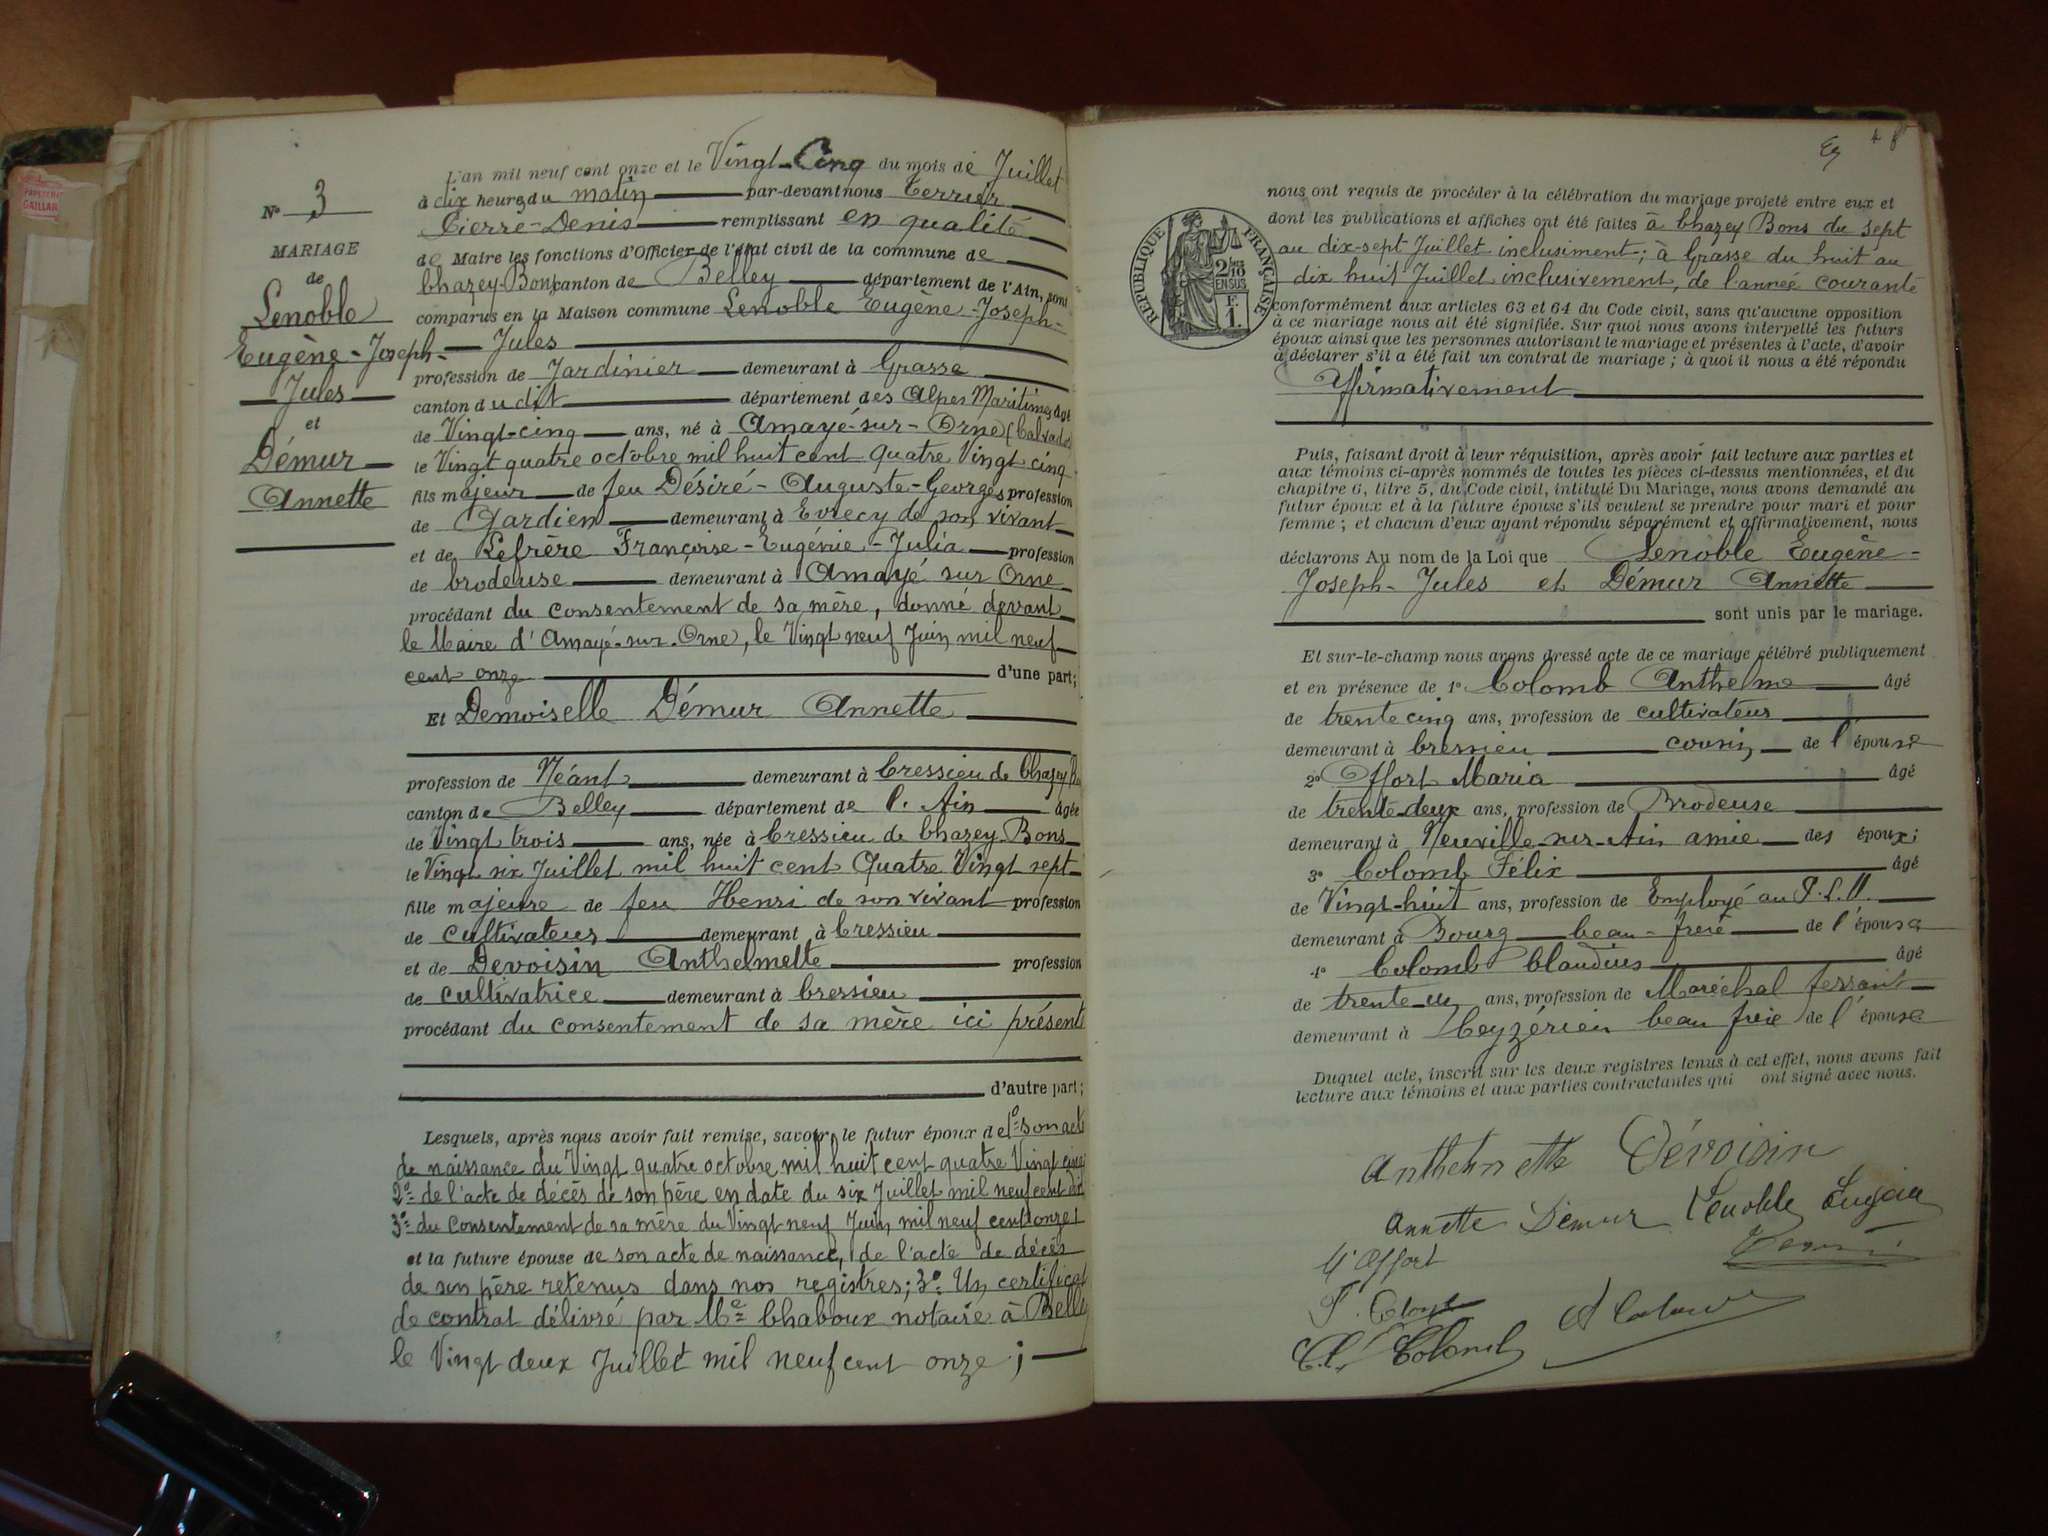 PAPETERIE
GAILLARD
L'an mil neuf cent onze et le Vingt-Cinq du mois de Juillet
à dix heures du matin par-devant nous Terrier
Pierre-Denis remplissant en qualité
de Maire les fonctions d'Officier de l'état civil de la commune de
Chazey-Bons canton de Belley département de l'Ain, sont
comparus en la Maison commune Lenoble Eugène-Joseph-
Jules
profession de Jardinier demeurant à Grasse
canton dudit département des Alpes Maritimes âgé
de Vingt-cinq ans, né à Amayé-sur-Orne (Calvados)
le Vingt quatre octobre mil huit cent quatre Vingt cinq
fils majeur de feu Désiré-Auguste-Georges profession
de Gardien demeurant à Evrecy de son vivant
et de Lefrère Françoise-Eugénie-Julia profession
de brodeuse demeurant à Amayé sur Orne
procédant du consentement de sa mère, donné devant
le Maire d'Amayé-sur-Orne, le Vingt neuf Juin mil neuf
cent onze d'une part;
Et Demoiselle Démur Annette
profession de Néant demeurant à Cressieu de Chazey Bons
canton de Belley département de l'Ain âgée
de Vingt trois ans, née à Cressieu de Chazey-Bons
le Vingt six Juillet mil huit cent Quatre Vingt sept
fille majeure de feu Henri de son vivant profession
de cultivateur demeurant à Cressieu
et de Devoisin Anthelmette profession
de cultivatrice demeurant à Cressieu
procédant du consentement de sa mère ici présente
d'autre part;
Lesquels, après nous avoir fait remise, savoir, le futur époux de 1º son acte
de naissance du Vingt quatre octobre mil huit cent quatre Vingt cinq
2º de l'acte de décès de son père en date du six Juillet mil neuf cent dix
3º du consentement de sa mère du Vingt neuf Juin mil neuf cent onze;
et la future épouse de son acte de naissance, de l'acte de décès
de son père retenus dans nos registres; 3º Un certificat
de contrat délivré par Me Chaboux notaire à Belley
le Vingt deux Juillet mil neuf cent onze;
Nº 3
MARIAGE
de
Lenoble
Eugène-Joseph-
Jules
et
Démur
Annette
48
RÉPUBLIQUE FRANÇAISE
2/10
EN SUS
F.
1.
nous ont requis de procéder à la célébration du mariage projeté entre eux et
dont les publications et affiches ont été faites à Chazey Bons du sept
au dix-sept Juillet inclusiment; à Grasse du huit au
dix huit Juillet inclusivement, de l'année courante
conformément aux articles 63 et 64 du Code civil, sans qu'aucune opposition
à ce mariage nous ait été signifiée. Sur quoi nous avons interpellé les futurs
époux ainsi que les personnes autorisant le mariage et présentes à l'acte, d'avoir
à déclarer s'il a été fait un contrat de mariage; à quoi il nous a été répondu
Affirmativement
Puis, faisant droit à leur réquisition, après avoir fait lecture aux parties et
aux témoins ci-après nommés de toutes les pièces ci-dessus mentionnées, et du
chapitre 6, titre 5, du Code civil, intitulé Du Mariage, nous avons demandé au
futur époux et à la future épouse s'ils veulent se prendre pour mari et pour
femme; et chacun d'eux ayant répondu séparément et affirmativement, nous
déclarons Au nom de la Loi que Lenoble Eugène-
Joseph-Jules et Démur Annette
sont unis par le mariage.
Et sur-le-champ nous avons dressé acte de ce mariage célébré publiquement
et en présence de 1º Colomb Anthelme âgé
de trente cinq ans, profession de cultivateur
demeurant à Cressieu cousin de l'épouse
2º Offort Maria âgé
de trente-deux ans, profession de Brodeuse
demeurant à Neuville-sur-Ain amie des époux;
3º Colomb Félix âgé
de Vingt-huit ans, profession de Employé au P.L.M.
demeurant à Bourg beau-frère de l'épouse
4º Colomb Claudius âgé
de trente-un ans, profession de Maréchal ferrant
demeurant à Ceyzérieu beau frère de l'épouse
Duquel acte, inscrit sur les deux registres tenus à cet effet, nous avons fait
lecture aux témoins et aux parties contractantes qui ont signé avec nous.
Anthelmette Dévoisin
Annette Démur Lenoble Eugène
M Offort
F. Colomb
Cl. Colomb A Colomb